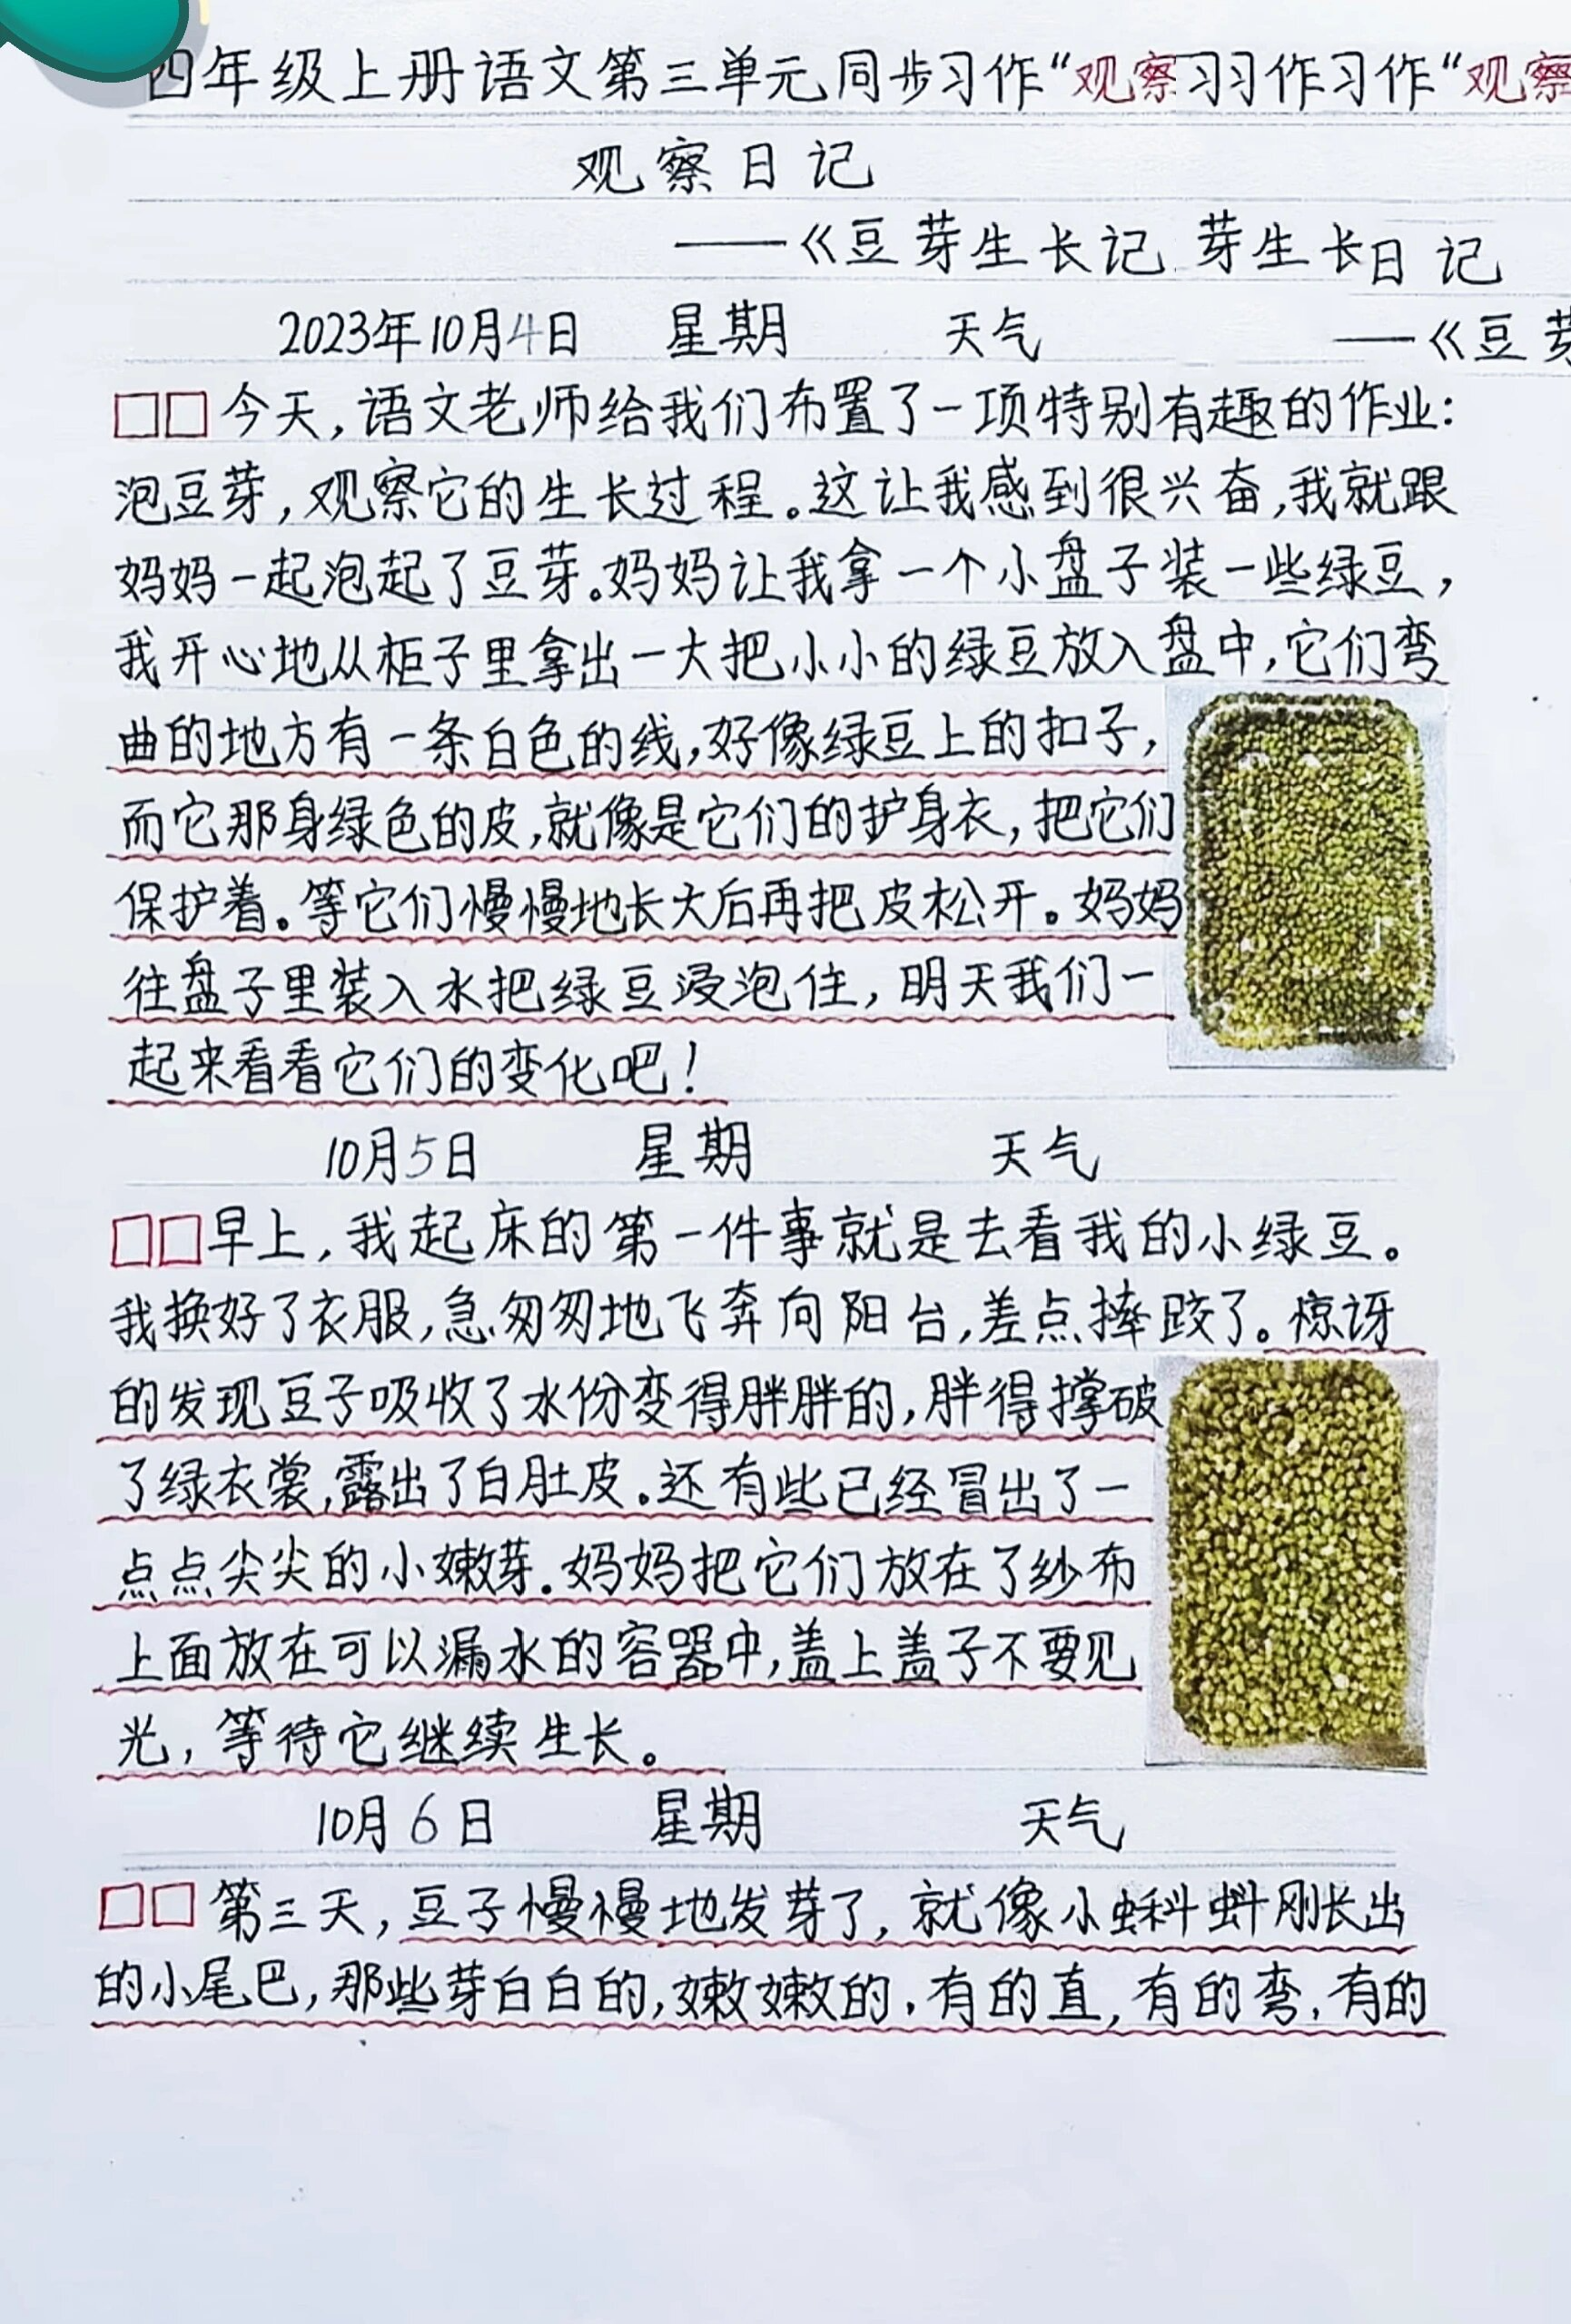 四年级上册语文第三单元同步习作“观察习习作习作“观察
观察日记
——《豆芽生长记 芽生长日记
2023年10月4日 星期 天气 ——《豆芽
□□今天，语文老师给我们布置了一项特别有趣的作业：
泡豆芽，观察它的生长过程。这让我感到很兴奋，我就跟
妈妈一起泡起了豆芽。妈妈让我拿一个小盘子装一些绿豆，
我开心地从柜子里拿出一大把小小的绿豆放入盘中，它们弯
曲的地方有一条白色的线，好像绿豆上的扣子，
而它那身绿色的皮，就像是它们的护身衣，把它们
保护着。等它们慢慢地长大后再把皮松开。妈妈
往盘子里装入水把绿豆浸泡住，明天我们一
起来看看它们的变化吧！
10月5日 星期 天气
□□早上，我起床的第一件事就是去看我的小绿豆。
我换好了衣服，急匆匆地飞奔向阳台，差点摔跤了。惊讶
的发现豆子吸收了水份变得胖胖的，胖得撑破
了绿衣裳，露出了白肚皮。还有些已经冒出了一
点点尖尖的小嫩芽。妈妈把它们放在了纱布
上面放在可以漏水的容器中，盖上盖子不要见
光，等待它继续生长。
10月6日 星期 天气
□□第三天，豆子慢慢地发芽了，就像小蝌蚪刚长出
的小尾巴，那些芽白白的，嫩嫩的，有的直，有的弯，有的